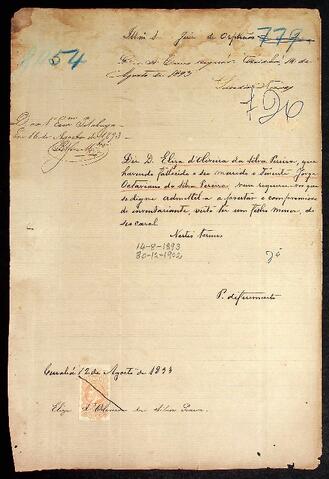 Illmo Sr. Juiz de Orphãos
779
1054
Como requer. Corumbá, 14 de
Agosto de 1893
790
Em 16 de Agosto de 1893
Diz D. Eliza d'Oliveira da Silva Pereira, que
havendo fallecido o seu marido
Octaviano da Silva Pereira, vem requerer-vos que
se digne admittil-a a prestar o compromisso
de inventariante, visto ter um filho menor, do
seo casal
Nestes termos
14-8-1893
30-12-1902
P. deferimento
12 de Agosto de 1893
Eliza d'Oliveira da Silva Pereira